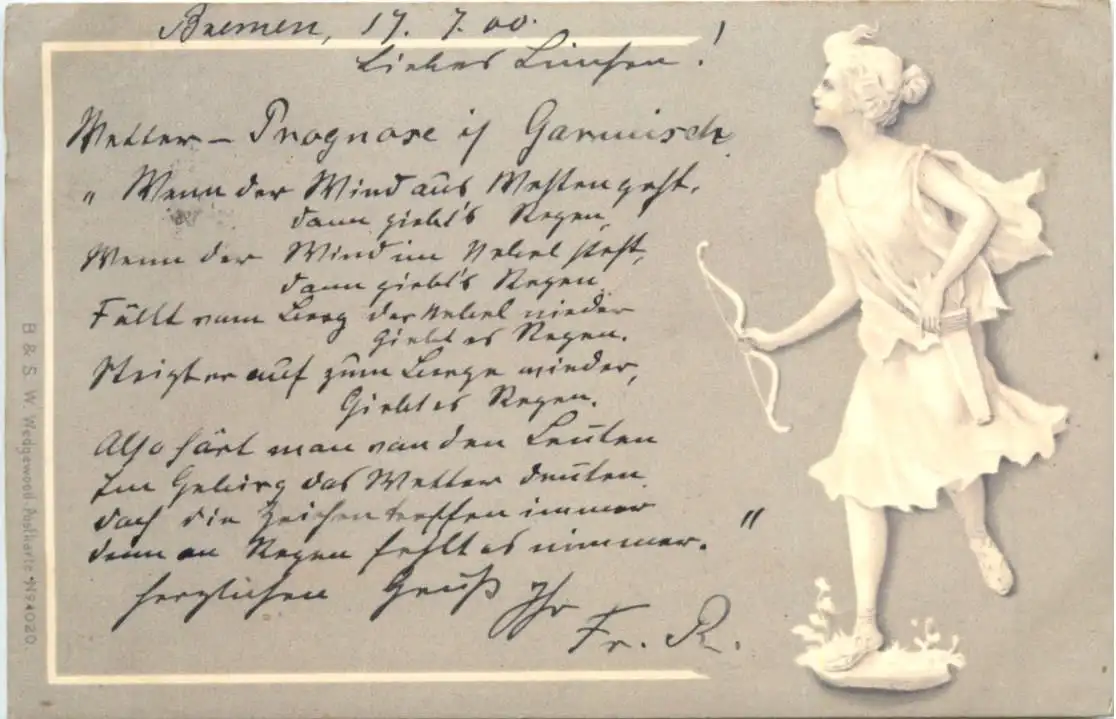 Bremen, 17. 7. 00.
Liebes Linchen!
Wetter – Prognose i/ Garmisch
„ Wenn der Wind aus Westen geht,
dann giebt's Regen,
Wenn der Wind im Nebel steht,
dann giebt's Regen
Fällt vom Berg der Nebel nieder
Giebt es Regen.
Steigt er auf zum Berge wieder,
Giebt es Regen.
Also hört man von den Leuten
Im Gebirg das Wetter deuten.
doch die Zeichen treffen immer
denn an Regen fehlt es nimmer. "
herzlichen Gruß Ihr
Fr. R.
B & S. W. Wedgewood-Postkarte Nº 4020.